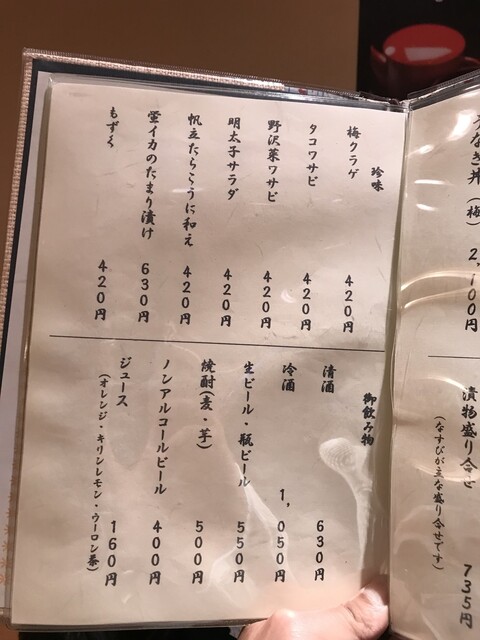 うなぎ丼(梅) 2,100円
漬物盛り合せ 735円
(なすびが主な盛り合せです)
珍味
梅クラゲ 420円
タコワサビ 420円
野沢菜ワサビ 420円
明太子サラダ 420円
帆立たらこうに和え 420円
蛍イカのたまり漬け 630円
もずく 420円
御飲み物
清酒 630円
冷酒 1,050円
生ビール・瓶ビール 550円
焼酎(麦・芋) 500円
ノンアルコールビール 400円
ジュース 160円
(オレンジ・キリンレモン・ウーロン茶)